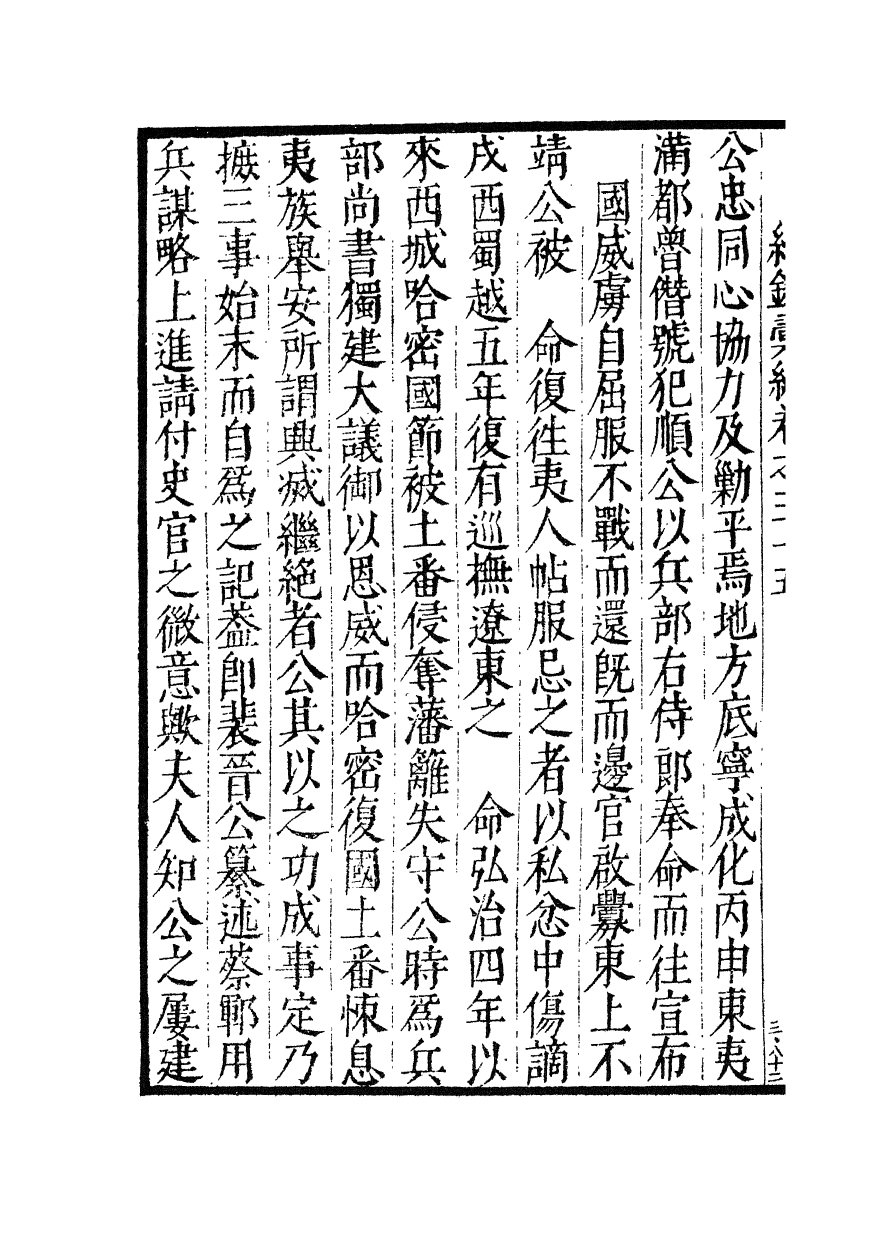 紀錄彙編卷之三十五
公忠同心協力及勦平焉地方底寧成化丙申東夷
滿都曾僭號犯順公以兵部右侍郎奉命而往宣布
國威虜自屈服不戰而還旣而邊官啟釁東上不
靖公被　命復徃夷人帖服忌之者以私忿中傷謫
戍西蜀越五年復有巡撫遼東之　命弘治四年以
來西城哈密國節被土番侵奪藩籬失守公時爲兵
部尚書獨建大議御以恩威而哈密復國土番悚息
夷族舉安所謂興滅繼絕者公其以之功成事定乃
摭三事始末而自爲之記葢卽裴晉公纂述蔡鄆用
兵謀略上進請付史官之微意歟夫人知公之屢建